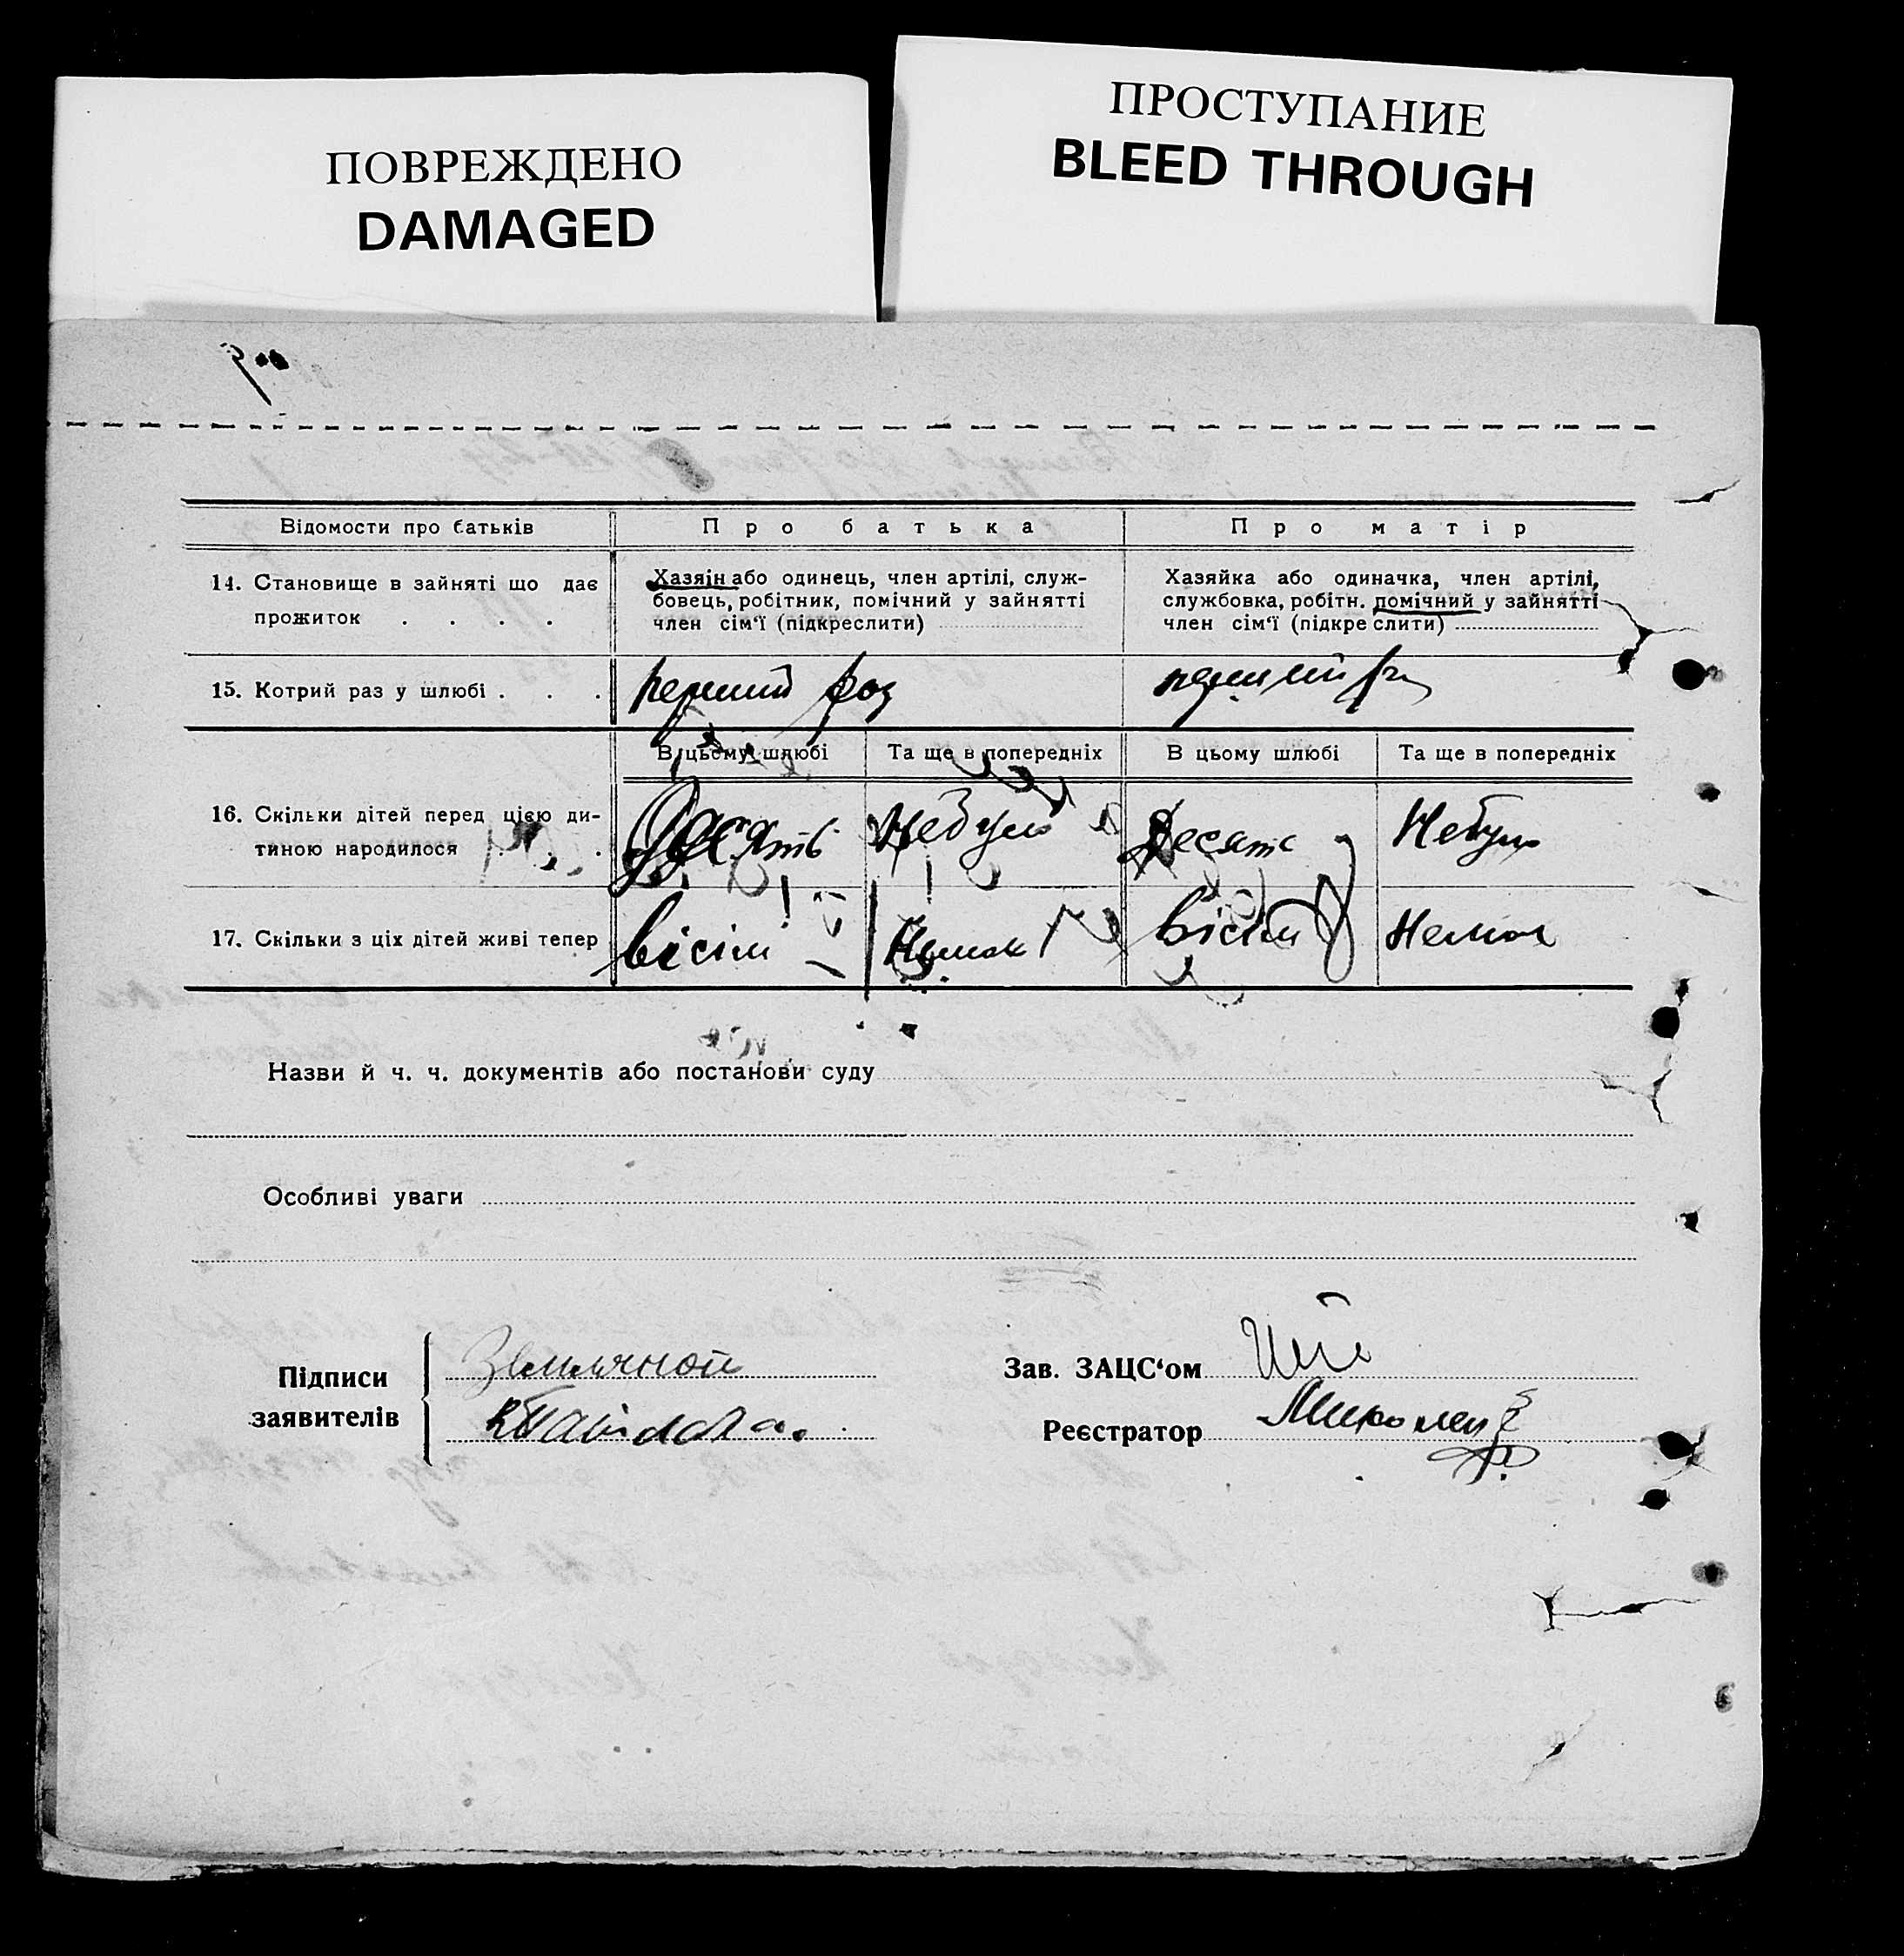 ПОВРЕЖДЕНО
DAMAGED
ПРОСТУПАНИЕ
BLEED THROUGH
Відомости про батьків
Про батька
Про матір
14. Становище в зайняті що дає
прожиток . . . .
Хазяін або одинець, член артілі, служ-
бовець, робітник, помічний у зайнятті
член сім'ї (підкреслити)
Хазяйка або одиначка, член артілі,
службовка, робітн. помічний у зайнятті
член сім'ї (підкреслити)
15. Котрий раз у шлюбі . . .
перший раз
перший раз
В цьому шлюбі
Та ще в попередніх
В цьому шлюбі
Та ще в попередніх
16. Скільки дітей перед цією ди-
тиною народилося . . .
Десять
Небуло
Десять
Небуло
17. Скільки з ціх дітей живі тепер
Вісім
Немає
Вісім
Немає
Назви й ч. ч. документів або постанови суду
Особливі уваги
Підписи
заявителів
Землячной
Зав. ЗАЦС'ом
Реєстратор